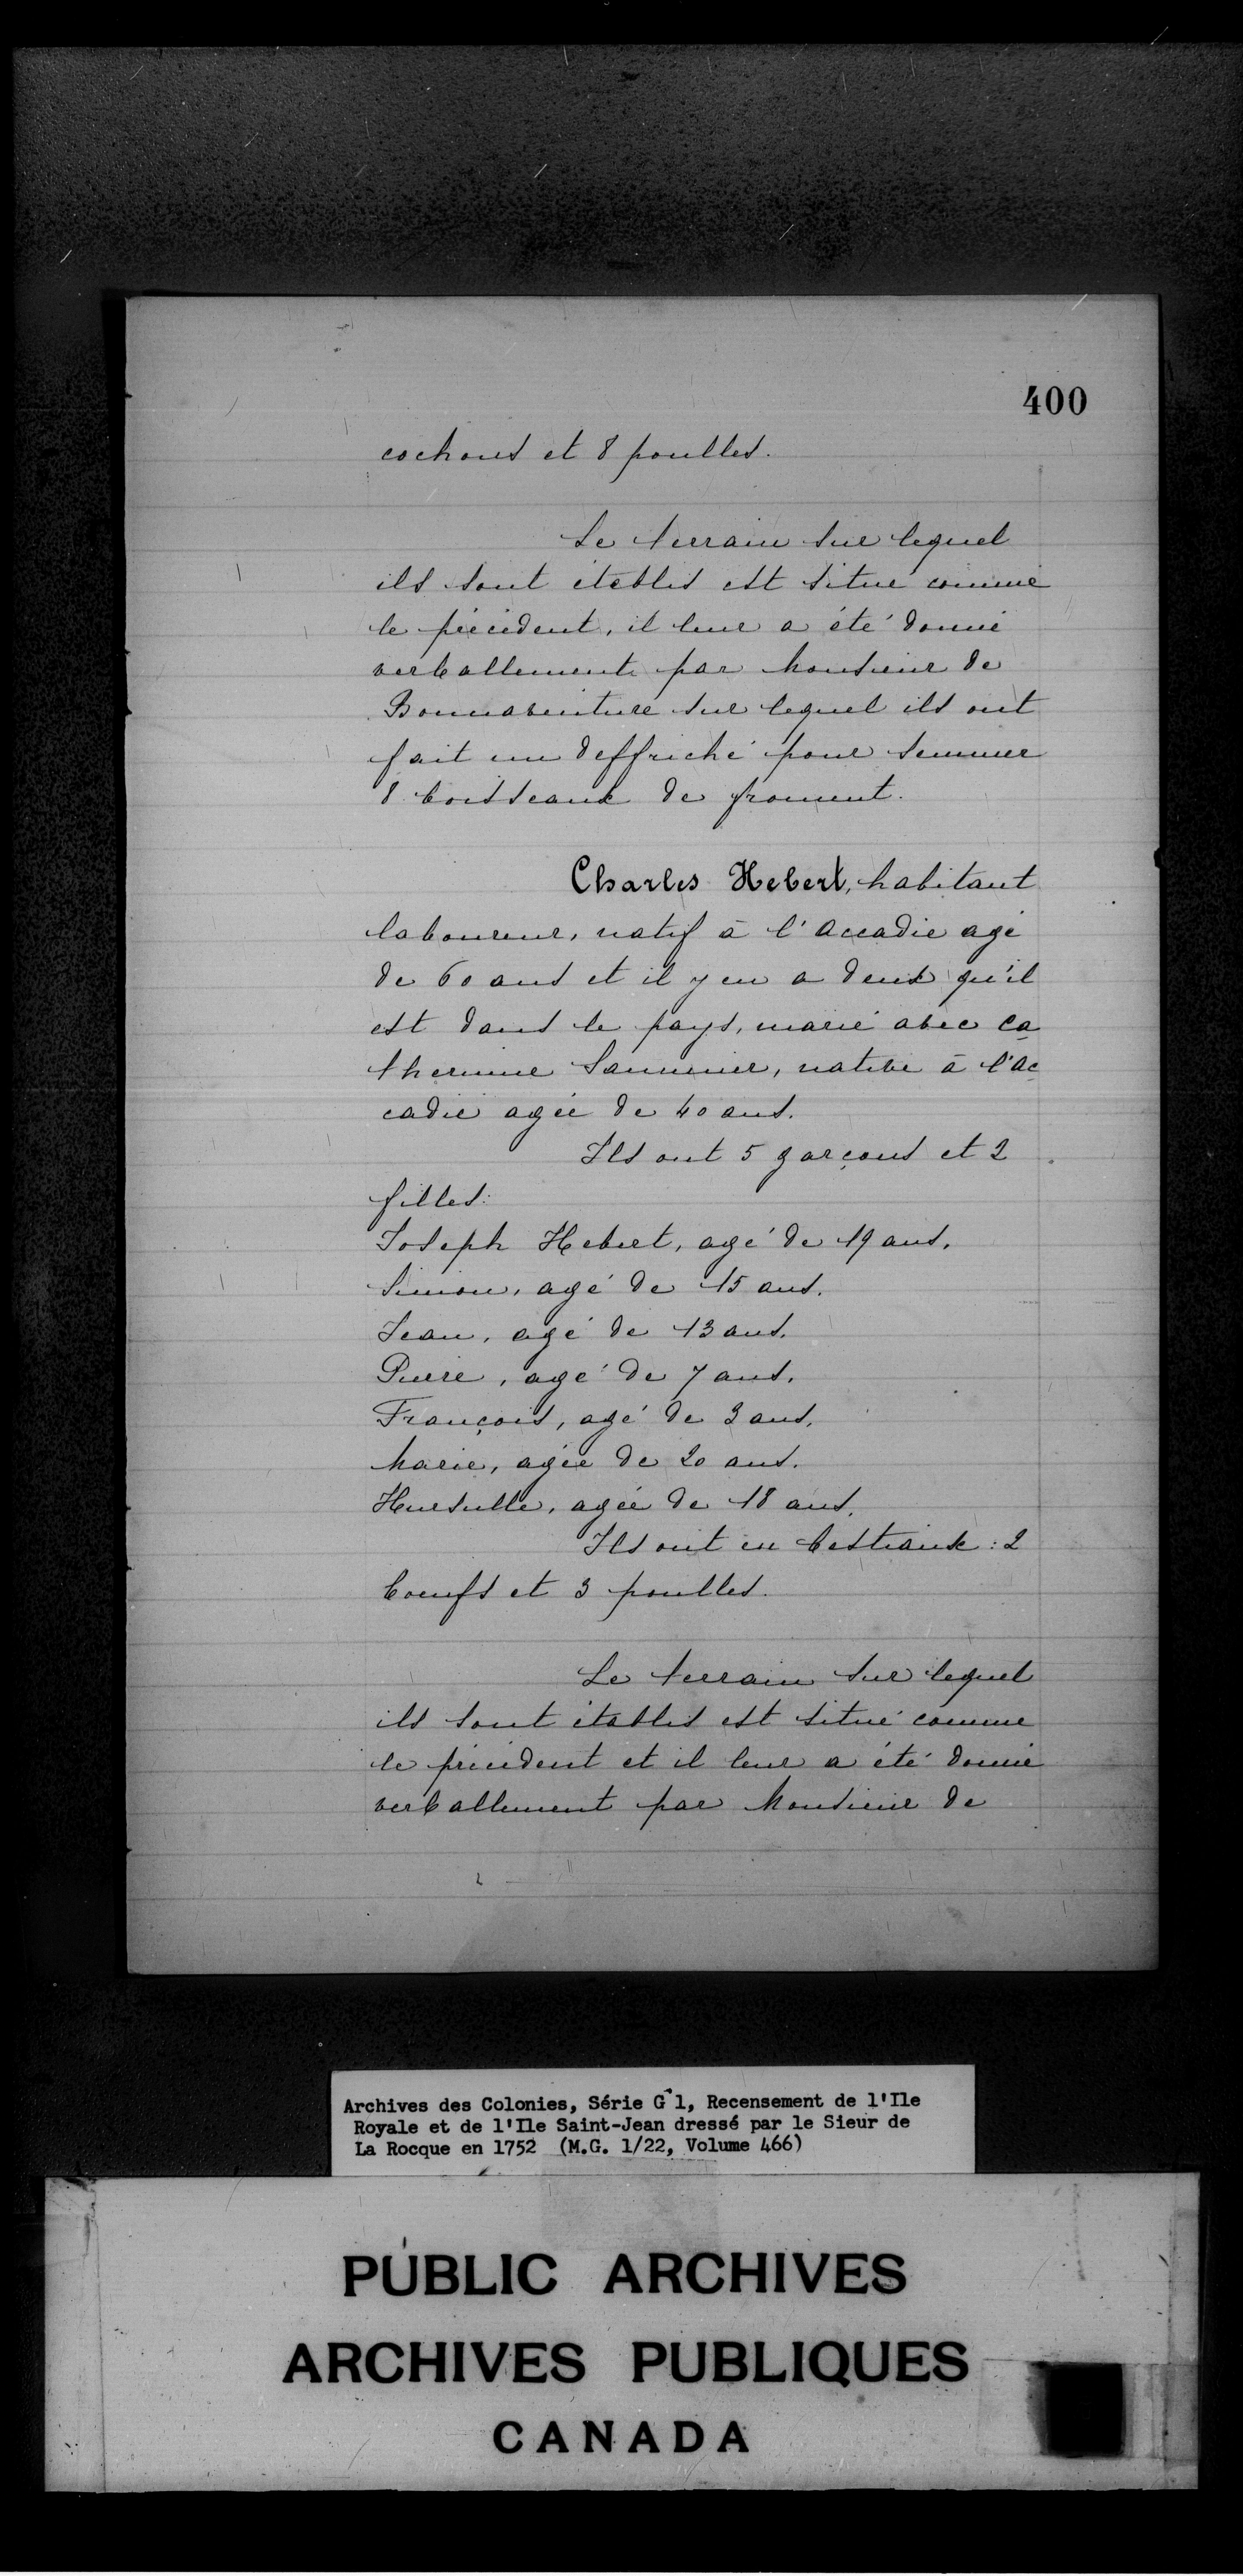 400
cochons et 8 poulles.
Le terrain sur lequel
ils sont établis est situé comme
le précédent, il leur a été donné
verballement par Monsieur de
Bonnaventure sur lequel ils ont
fait un deffriché pour semmer
8 boisseaux de froment.
Charles Hebert, habitant
laboureur, natif à l'Accadie agé
de 60 ans et il y en a deux qu'il
est dans le pays, marié avec Ca
therinne Saunnier, native à l'Ac
cadie agée de 40 ans.
Ils ont 5 garçons et 2
filles:
Joseph Hebert, agé de 19 ans.
Simon, agé de 15 ans.
Jean, agé de 13 ans.
Pierre, agé de 7 ans.
François, agé de 3 ans.
Marie, agée de 20 ans.
Hursulle, agée de 18 ans.
Ils ont en bestiaux: 2
boeufs et 3 poulles.
Le terrain sur lequel
ils sont établis est situé comme
le précédent et il leur a été donné
verballement par Monsieur de
Archives des Colonies, Série G 1, Recensement de l'Ile
Royale et de l'Ile Saint-Jean dressé par le Sieur de
La Rocque en 1752 (M.G. 1/22, Volume 466)
PUBLIC ARCHIVES
ARCHIVES PUBLIQUES
CANADA